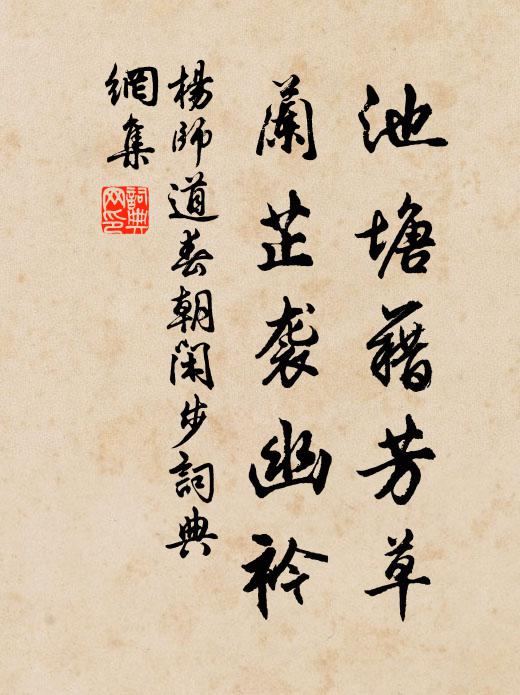 池塘藉芳草
蘭芷袭幽衿
楊師道春朝閑步詞典
網集
詞典
网印